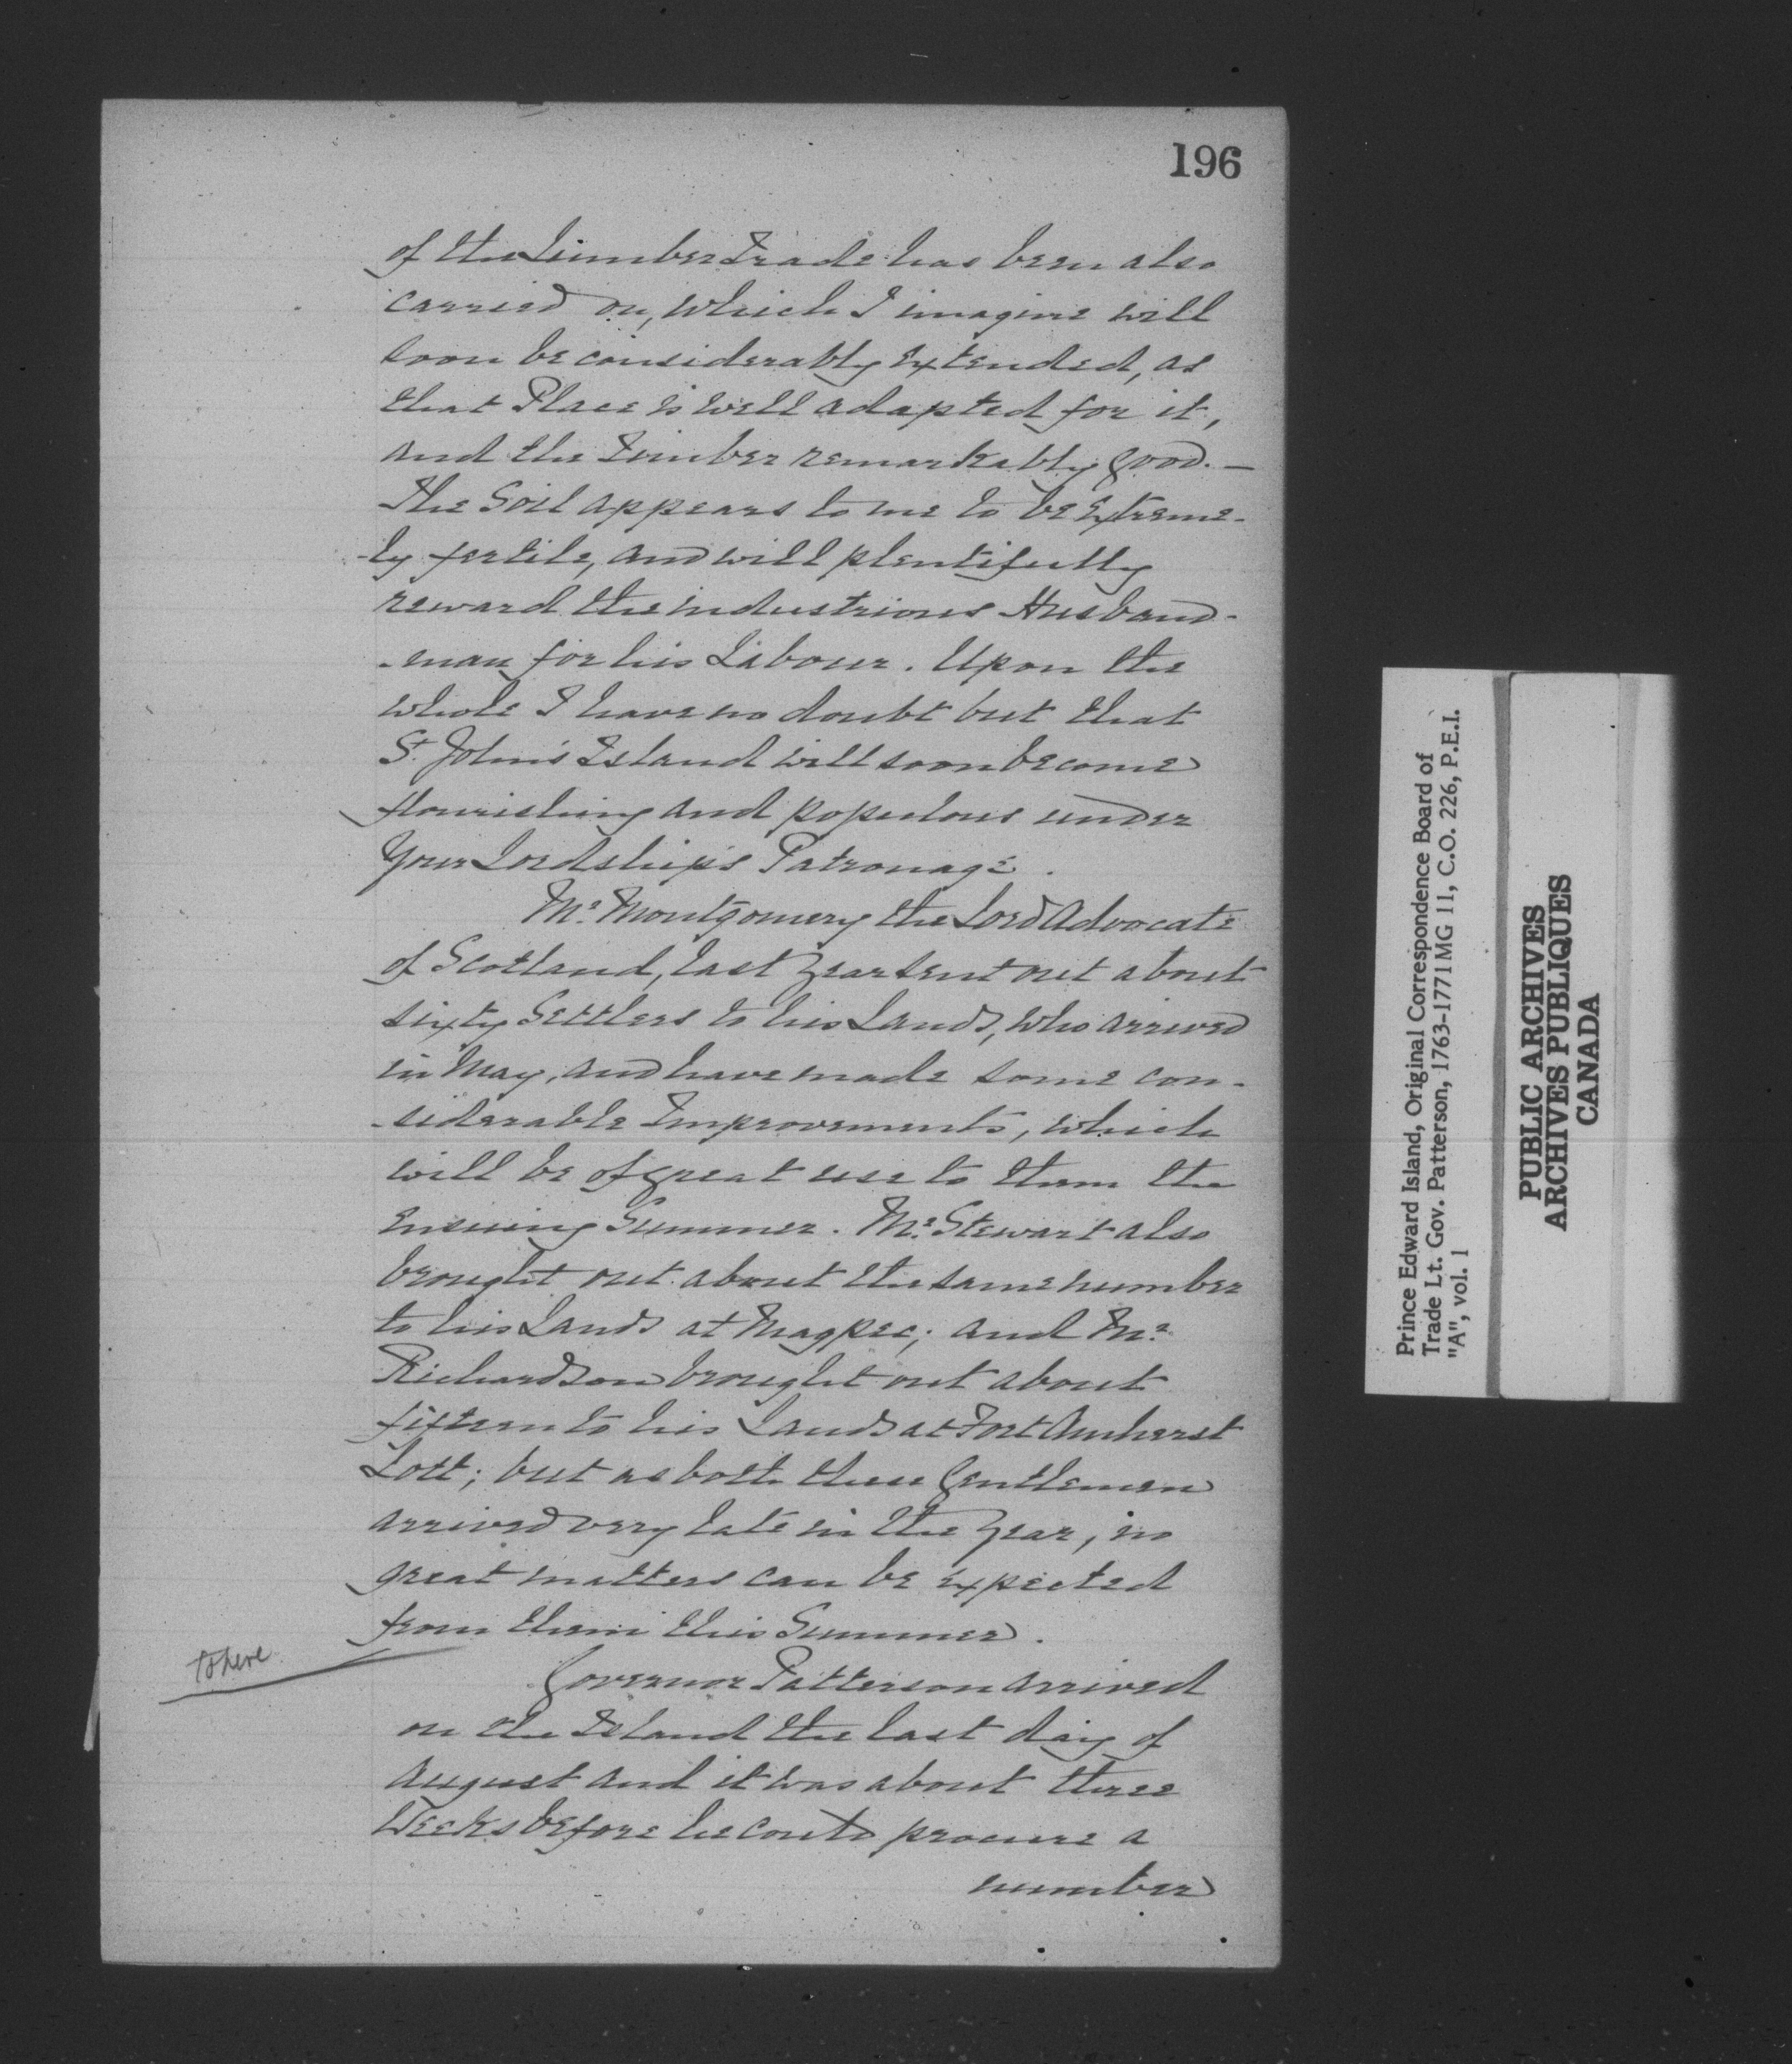 196
of the Lumber Trade has been also
carried on, which I imagine will
soon be considerably extended, as
that Place is well adapted for it,
and the Timber remarkably good. —
The Soil appears to me to be Extreme-
-ly fertile, and will plentifully
reward the industrious Husband-
-man for his Labour. Upon the
whole I have no doubt but that
St. John's Island will soon become
flourishing and populous under
Your Lordship's Patronage.
Mr. Montgomery the Lord Advocate
of Scotland, last Year sent out about
sixty Settlers to his Lands, who arrived
in May, and have made some con-
-siderable Improvements, which
will be of great use to them the
Ensuing Summer. Mr. Stewart also
brought out about the same number
to his Lands at Magpec; and Mr.
Richardson brought out about
fifteen to his Lands at Fort Amherst
Lott; but as both these Gentlemen
arrived very late in the Year, no
great matters can be expected
from them this Summer.
to here
Governor Patterson arrived
on the Island the last day of
August and it was about three
Weeks before he could procure a
number
Prince Edward Island, Original Correspondence Board of
Trade Lt. Gov. Patterson, 1763-1771 MG 11, C.O. 226, P.E.I.
"A", vol. 1
PUBLIC ARCHIVES
ARCHIVES PUBLIQUES
CANADA